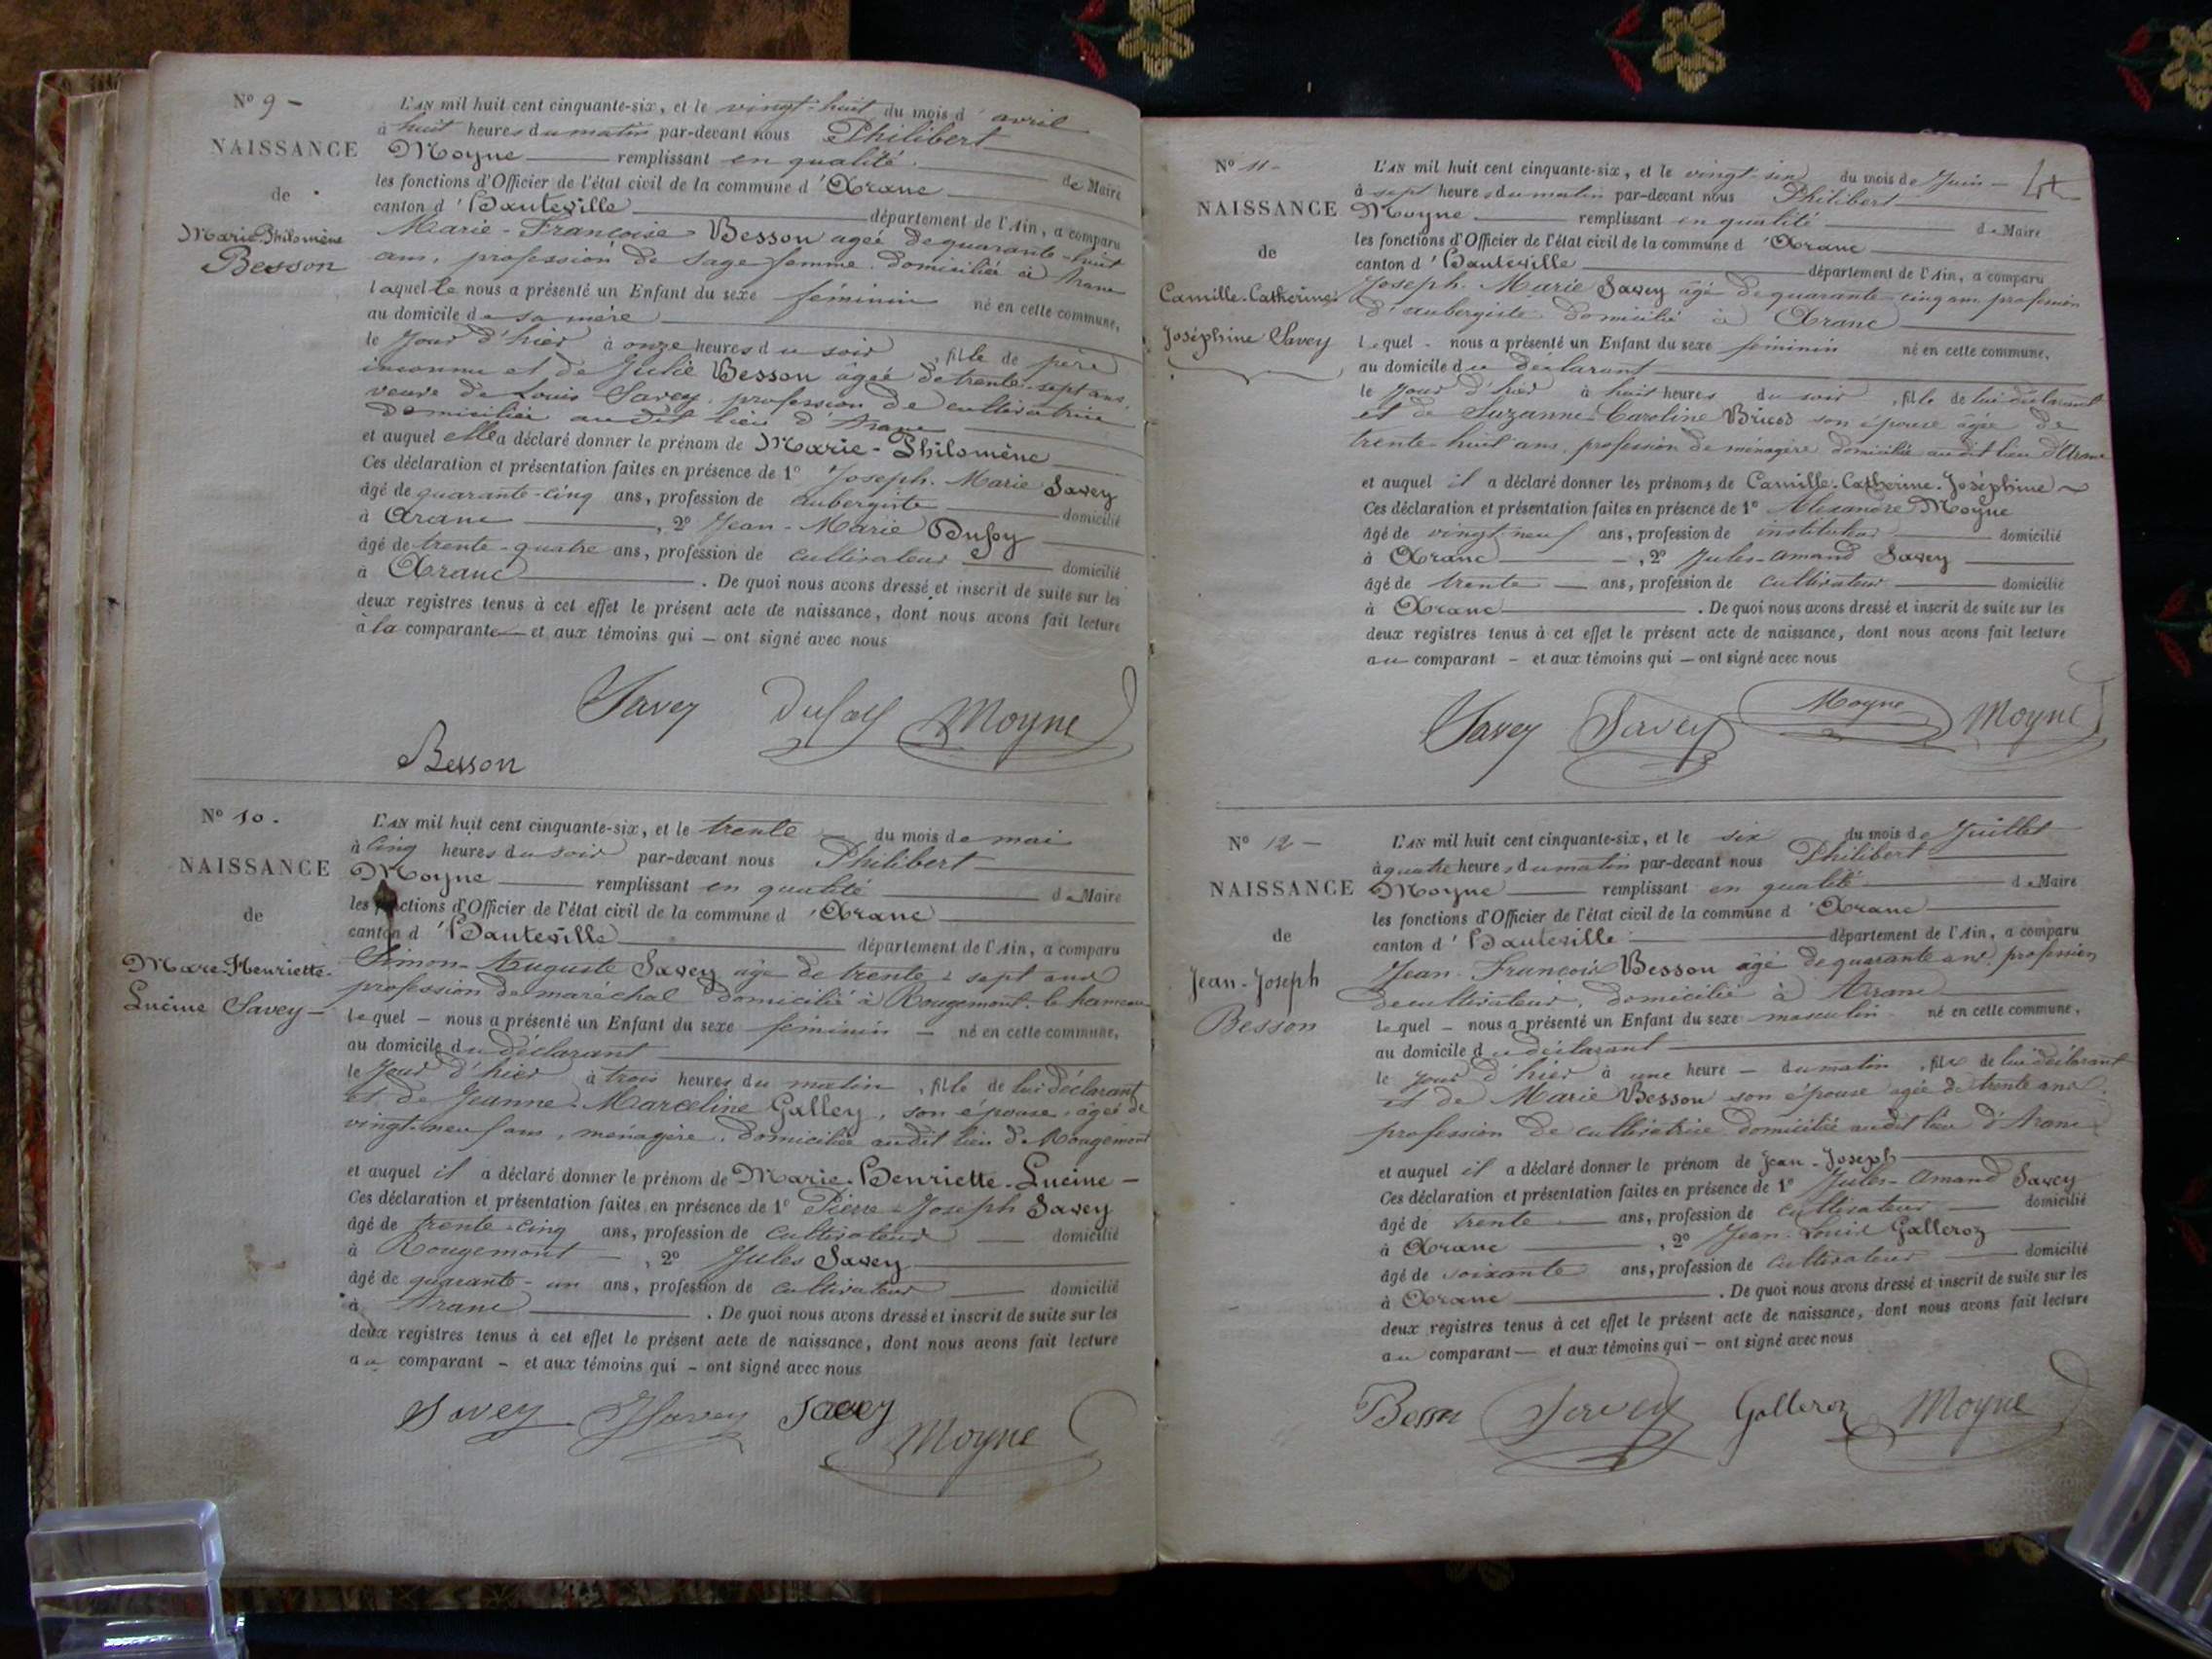 N° 9 -
NAISSANCE
de
Marie-Philomène
Besson
L'AN mil huit cent cinquante-six, et le vingt-huit du mois d' avril
à huit heures du matin par-devant nous Philibert
Moyne remplissant en qualité de Maire
les fonctions d'Officier de l'état civil de la commune d' Aranc
canton d' Hauteville département de l'Ain, a comparu
Marie-Françoise Besson agée de quarante-huit
ans, profession de sage femme domiciliée à Aranc
laquelle nous a présenté un Enfant du sexe féminin né en cette commune,
au domicile de sa mère
le jour d'hier à onze heures du soir, fille de père
inconnu et de Julie Besson âgée de trente-sept ans,
veuve de Louis Savey, profession de cultivatrice
domiciliée au dit lieu d'Aranc
et auquel elle a déclaré donner le prénom de Marie-Philomène
Ces déclaration et présentation faites en présence de 1° Joseph-Marie Savey
âgé de quarante-cinq ans, profession de aubergiste domicilié
à Aranc, 2° Jean-Marie Dufoy
âgé de trente-quatre ans, profession de cultivateur domicilié
à Aranc. De quoi nous avons dressé et inscrit de suite sur les
deux registres tenus à cet effet le présent acte de naissance, dont nous avons fait lecture
a la comparante et aux témoins qui — ont signé avec nous
Savey Dufoy Moyne
Besson
N° 10.
NAISSANCE
de
Marie-Henriette-
Lucine Savey -
L'AN mil huit cent cinquante-six, et le trente du mois de mai
à cinq heures du soir par-devant nous Philibert
Moyne remplissant en qualité de Maire
les fonctions d'Officier de l'état civil de la commune d' Aranc
canton d' Hauteville département de l'Ain, a comparu
Simon-Auguste Savey âgé de trente-sept ans
profession de maréchal domicilié à Rougemont, le hameau
lequel — nous a présenté un Enfant du sexe féminin — né en cette commune,
au domicile du déclarant
le jour d'hier à trois heures du matin, fille de lui déclarant
et de Jeanne-Marceline Galley, son épouse, âgée de
vingt-neuf ans, ménagère, domiciliée audit lieu de Rougemont
et auquel il a déclaré donner le prénom de Marie-Henriette-Lucine -
Ces déclaration et présentation faites en présence de 1° Pierre-Joseph Savey
âgé de trente-cinq ans, profession de cultivateur — domicilié
à Rougemont, 2° Jules Savey
âgé de quarante-un ans, profession de cultivateur — domicilié
à Aranc. De quoi nous avons dressé et inscrit de suite sur les
deux registres tenus à cet effet le présent acte de naissance, dont nous avons fait lecture
au comparant - et aux témoins qui - ont signé avec nous
Savey JSavey Savey
Moyne
N° 11 -
NAISSANCE
de
Camille-Catherine-
Joséphine Savey
L'AN mil huit cent cinquante-six, et le vingt-six du mois de Juin -
à sept heures du matin par-devant nous Philibert
Moyne remplissant en qualité de Maire
les fonctions d'Officier de l'état civil de la commune d' Aranc
canton d' Hauteville département de l'Ain, a comparu
Joseph-Marie Savey âgé de quarante-cinq ans profession
d'aubergiste domicilié à Aranc
lequel - nous a présenté un Enfant du sexe féminin né en cette commune,
au domicile du déclarant
le jour d'hier à huit heures du soir, fille de lui déclarant
et de Suzanne-Caroline son épouse âgée de
trente-huit ans, profession de ménagère domiciliée audit lieu d'Aranc
et auquel il a déclaré donner les prénoms de Camille-Catherine-Joséphine
Ces déclaration et présentation faites en présence de 1° Alexandre Moyne
âgé de vingt-neuf ans, profession de instituteur domicilié
à Aranc, 2° Jules-Amand Savey
âgé de trente — ans, profession de cultivateur domicilié
à Aranc. De quoi nous avons dressé et inscrit de suite sur les
deux registres tenus à cet effet le présent acte de naissance, dont nous avons fait lecture
au comparant - et aux témoins qui — ont signé avec nous
Savey Savey Moyne Moyne
N° 12 -
NAISSANCE
de
Jean-Joseph
Besson
L'AN mil huit cent cinquante-six, et le six du mois de Juillet
à quatre heures du matin par-devant nous Philibert
Moyne remplissant en qualité de Maire
les fonctions d'Officier de l'état civil de la commune d' Aranc
canton d' Hauteville département de l'Ain, a comparu
Jean-François Besson âgé de quarante ans, profession
de cultivateur, domicilié à Aranc
lequel — nous a présenté un Enfant du sexe masculin né en cette commune,
au domicile du déclarant
le jour d'hier à une heure — du matin, fils de lui déclarant
et de Marie Besson son épouse agée de trente ans,
profession de cultivatrice domiciliée audit lieu d'Aranc
et auquel il a déclaré donner le prénom de Jean-Joseph
Ces déclaration et présentation faites en présence de 1° Jules-Amand Savey
âgé de trente — ans, profession de cultivateur — domicilié
à Aranc, 2° Jean-Louis Galleroz
âgé de soixante ans, profession de cultivateur domicilié
à Aranc. De quoi nous avons dressé et inscrit de suite sur les
deux registres tenus à cet effet le présent acte de naissance, dont nous avons fait lecture
au comparant — et aux témoins qui — ont signé avec nous
Besson Savey Galleroz Moyne